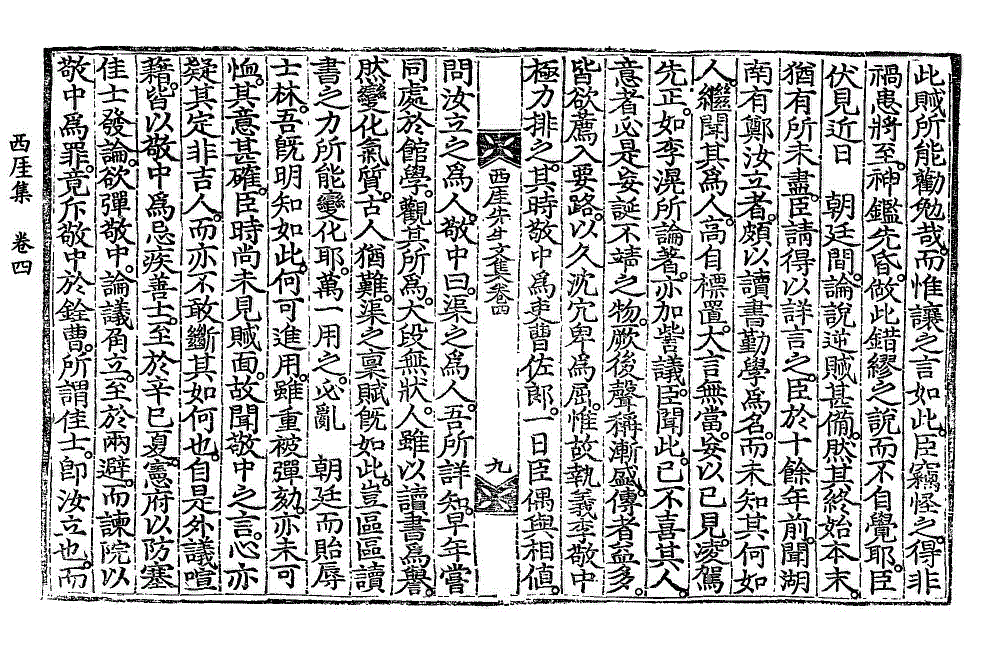 此賊所能勸勉哉而惟讓之言如此臣竊怪之得非
禍患將至神鑑先昏做此錯繆之說而不自覺耶臣
伏見近日 朝廷間論說逆賊甚備然其終始本末
猶有所未盡臣請得以詳言之臣於十餘年前聞湖
南有鄭汝立者頗以讀書勤學爲名而未知其何如
人繼聞其爲人高自標置大言無當妄以已見凌駕
先正如李滉所論著亦加訾議臣聞此已不喜其人
意者必是妄誕不靖之物厥後聲稱漸盛傳者益多
皆欲薦入要路以久沈冗卑爲屈惟故執義李敬中
極力排之其時敬中爲吏曹佐郎一日臣偶與相値
西厓先生文集卷四 九
問汝立之爲人敬中曰渠之爲人吾所詳知早年嘗
同處於館學觀其所爲大段無狀人雖以讀書爲譽
然變化氣質古人猶難渠之稟賦旣如此豈區區讀
書之力所能變化耶萬一用之必亂 朝廷而貽辱
士林吾旣明知如此何可進用雖重被彈劾亦未可
恤其意甚確臣時尚未見賊面故聞敬中之言心亦
疑其定非吉人而亦不敢斷其如何也自是外議喧
藉皆以敬中爲忌疾善士至於辛巳夏憲府以防塞
佳士發論欲彈敬中論議角立至於兩避而諫院以
敬中爲罪竟斥敬中於銓曹所謂佳士卽汝立也而
西厓集 卷四